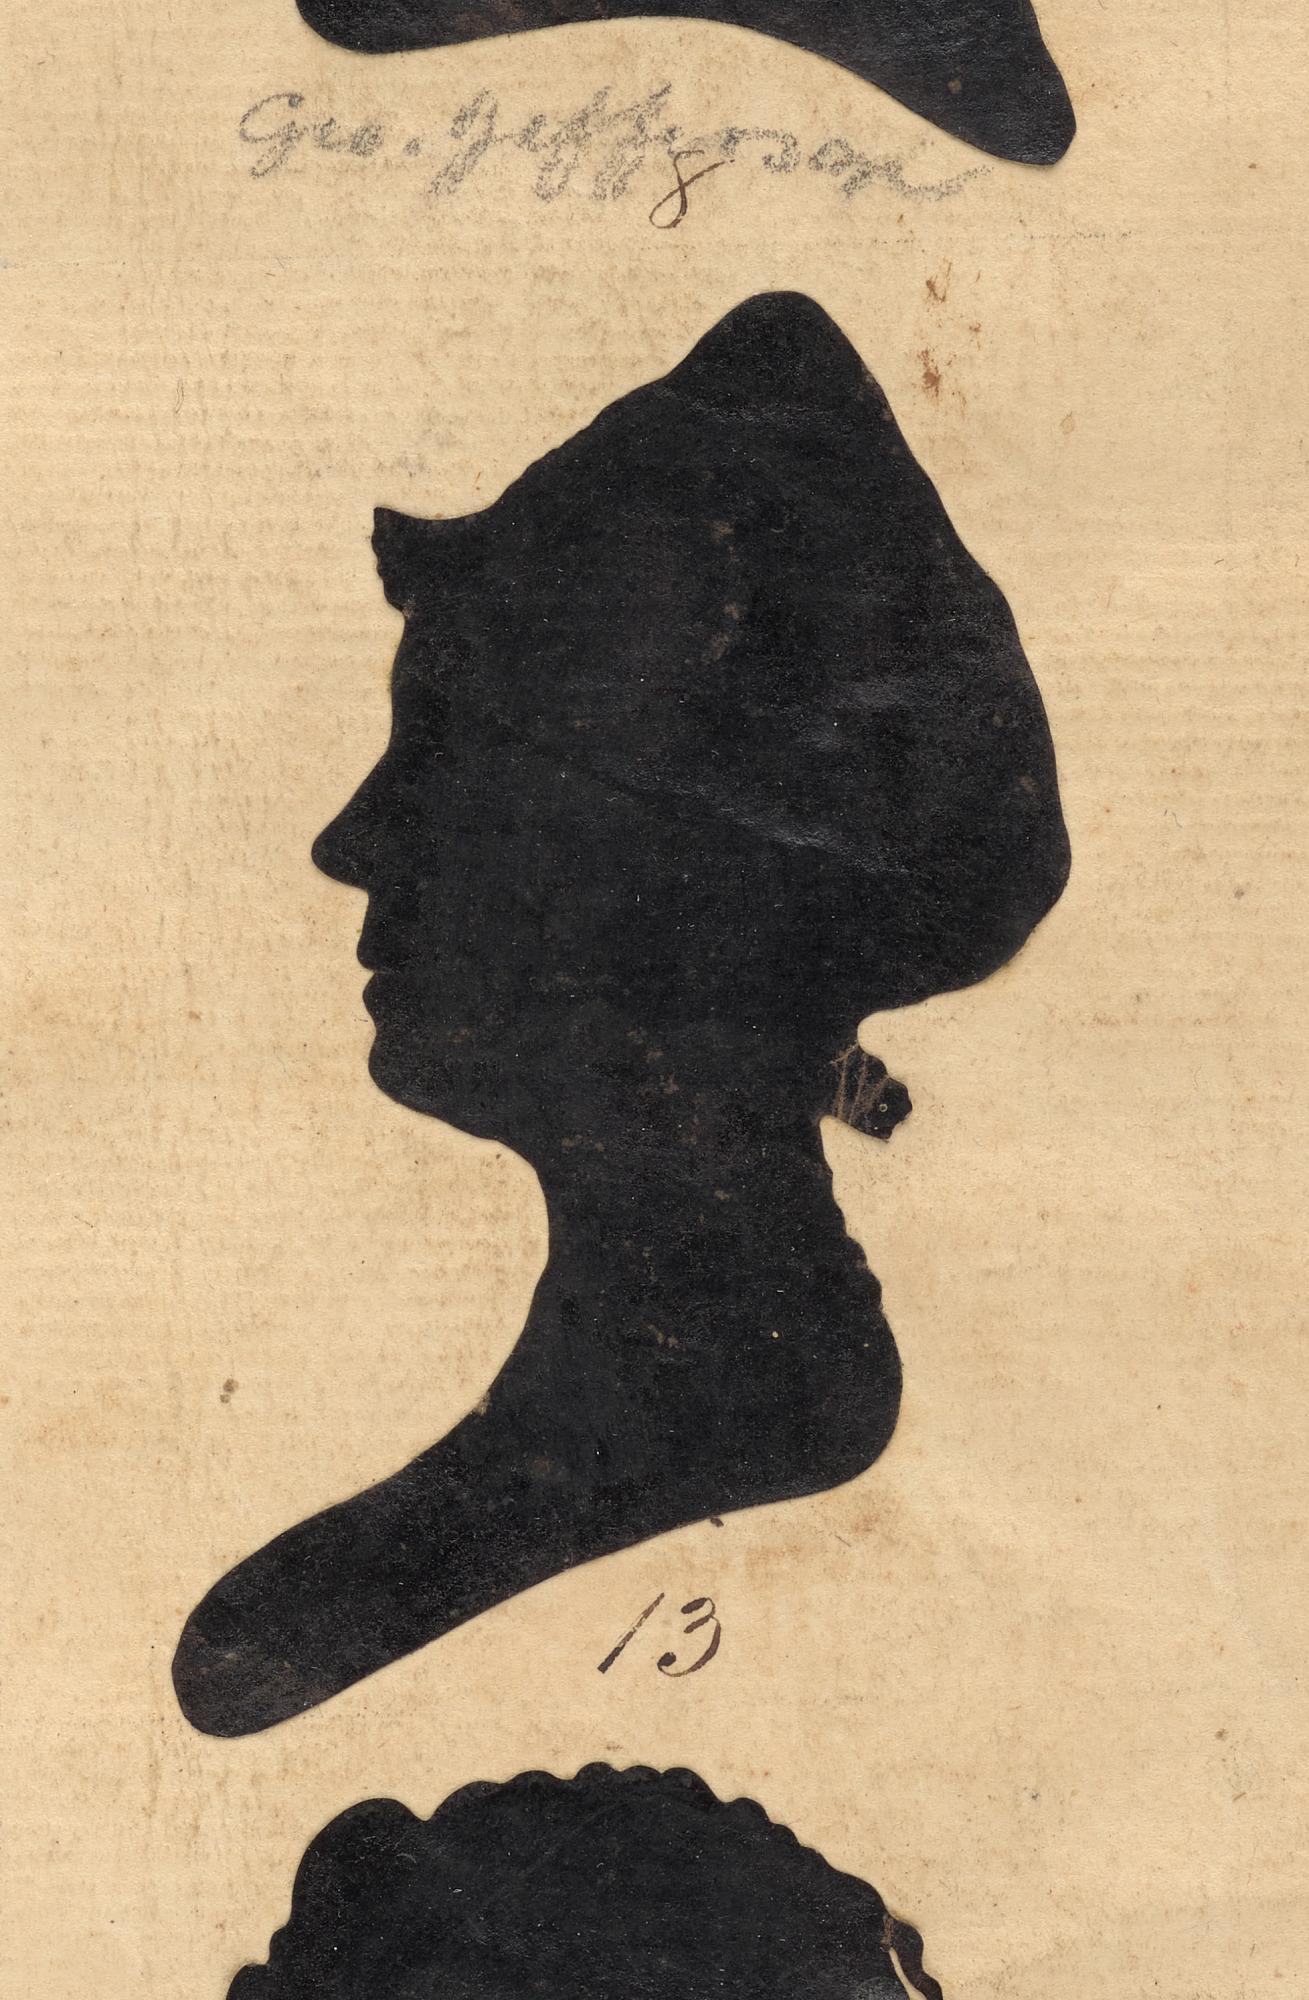 Geo. Jefferson
8
13